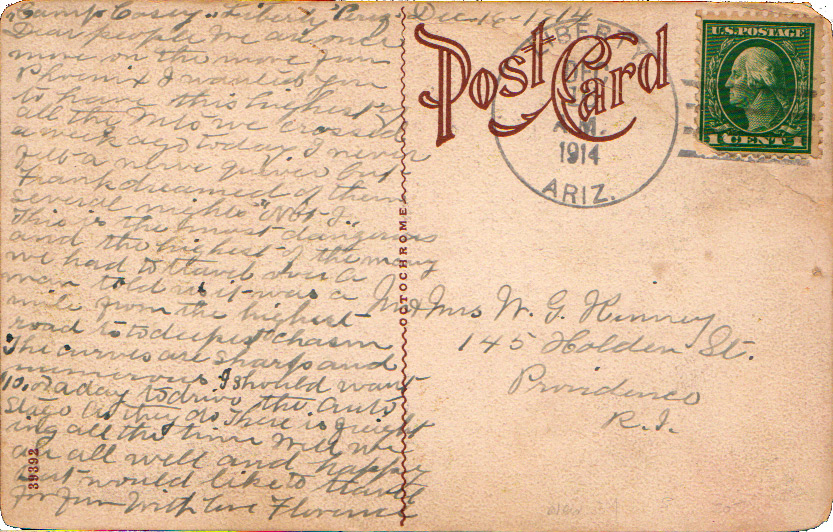 Camp Casey. Liberty Ariz. Dec 16-1914
Dear people We are once
more on the move from
Phoenix I wanted you
to have this highest of
all the Mts we crossed
a week ago today I never
felt a nerve quiver but
Frank dreamed of them
several nights "Not I.
This is the most dangerous
and the highest of the many
we had to travel over a
man told us it was a
mile from the highest
road to to deepest chasm
The curves are sharp and
numerous. I should want
10.00 a day to drive the auto
stage as they do There is freight
ing all the time Well we
are all well and happy
but would like to travel
for fun With love Florence
39392
OCTOCHROME
Post Card
LIBERTY
DEC
A.M.
1914
ARIZ.
U.S. POSTAGE
1 CENT 1
Mr & Mrs W. G. Kinney
145 Holden St.
Providence
R.I.